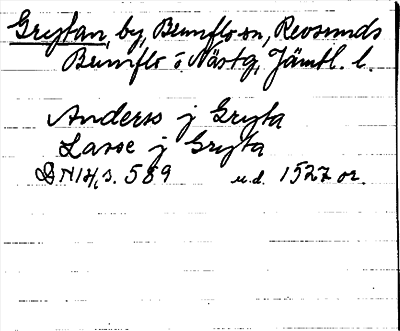 Grytan, by, Brunflo sn, Revsunds
Brunflo o. Nästg, Jämtl. l.
Anders j Gryta
Lasse j Gryta
DN 14/1 s. 589 u.d. 1527 or.